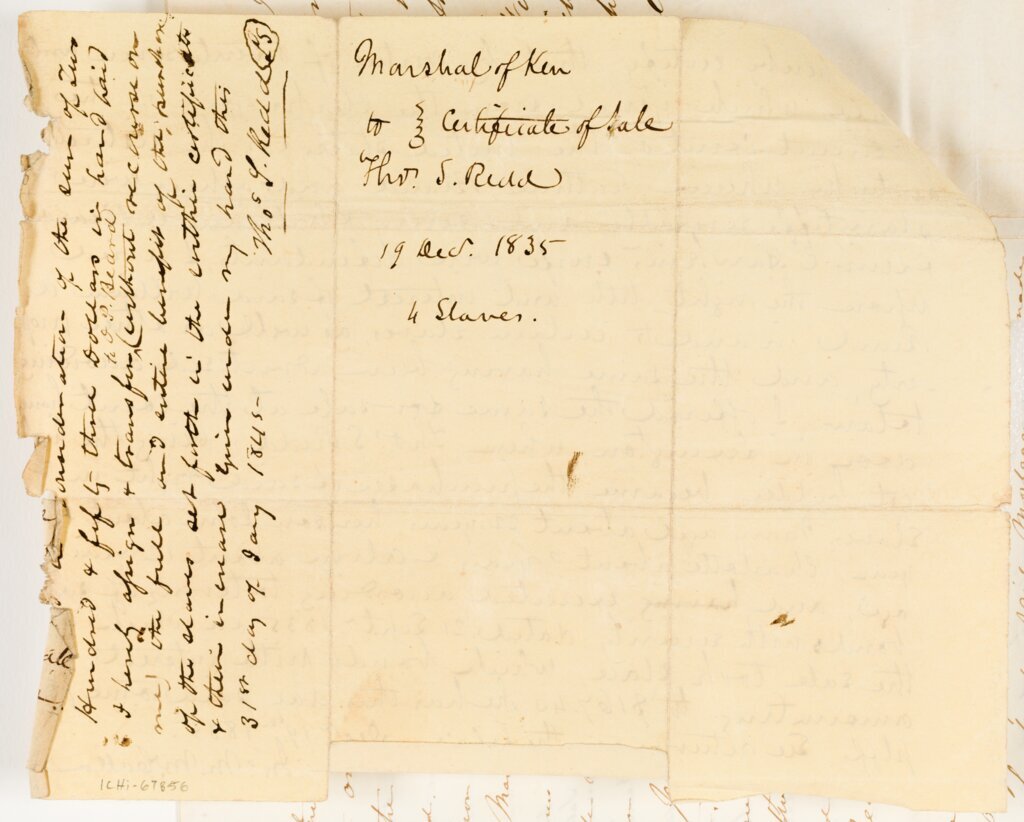 Marshal of Ken
to } Certificate of Sale
Thos. S. Redd
19 Decr. 1835
4 Slaves.
consideration of the sum of Two
Hundred & fifty three Dollars in hand paid
to J. P. Beard
I hereby assign & transfer, (without recourse on
me) the full and entire benefit of the purchase
of the slaves set forth in the within certificate
& their increase Given under my hand this
31st day of Jany 1845-
Thos S. Redd
ICHi-67856